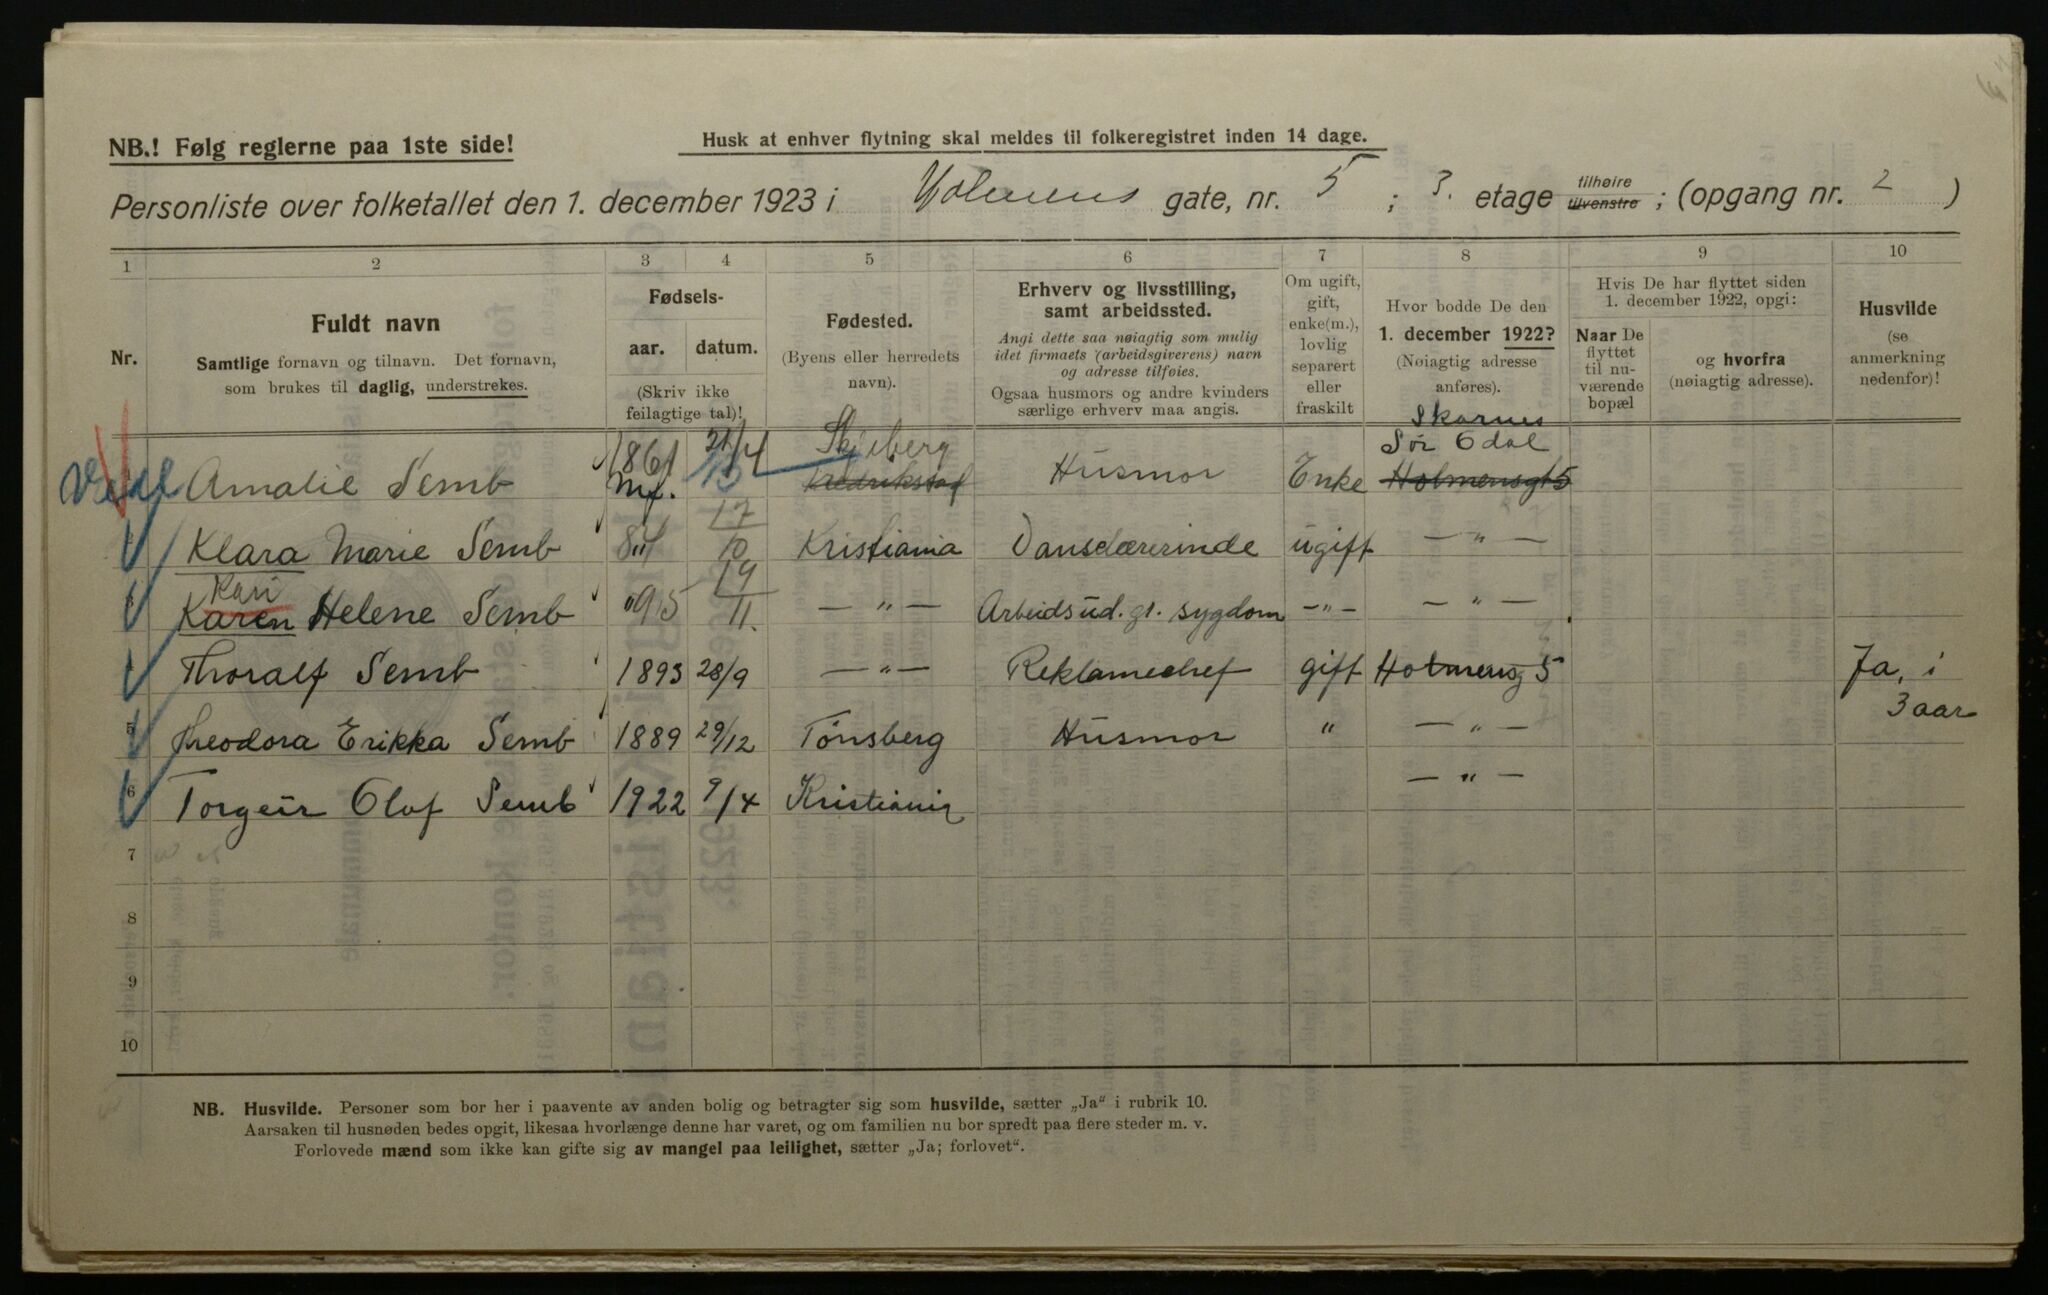 NB.! Følg reglerne paa 1ste side!
Husk at enhver flytning skal meldes til folkeregistret inden 14 dage.
Personliste over folketallet den 1. december 1923 i Holmens gate, nr. 5 ; 3. etage tilhøire tilvenstre ; (opgang nr. 2 )
1 2 3 4 5 6 7 8 9 10
Nr.
Fuldt navn
Samtlige fornavn og tilnavn. Det fornavn,
som brukes til daglig, understrekes.
Fødsels-
aar. datum.
(Skriv ikke
feilagtige tal)!
Fødested.
(Byens eller herredets
navn).
Erhverv og livsstilling,
samt arbeidssted.
Angi dette saa nøiagtig som mulig
idet firmaets (arbeidsgiverens) navn
og adresse tilføies.
Ogsaa husmors og andre kvinders
særlige erhverv maa angis.
Om ugift,
gift,
enke(m.),
lovlig
separert
eller
fraskilt
Hvor bodde De den
1. december 1922?
(Nøiagtig adresse
anføres).
Hvis De har flyttet siden
1. december 1922, opgi:
Naar De
flyttet
til nu-
værende
bopæl
og hvorfra
(nøiagtig adresse).
Husvilde
(se
anmerkning
nedenfor)!
Skarnes
1861 21/4 Skjeberg Sør Odal
Amalie Semb Fredrikstad Husmor Enke Holmensgt 5
Klara Marie Semb 17/10 Kristiania Danselærerinde ugift — " —
Kari
Karen Helene Semb 19/11. — " — Arbeidsud. gr. sygdom — " — — " —
Thoralf Semb 1893 28/9 — " — Reklamechef gift Holmensg 5 Ja, i
3 aar
5 Theodora Erikka Semb 1889 29/12 Tønsberg Husmor " — " —
6 Torgeir Olaf Semb 1922 9/4 Kristiania — " —
7
8
9
10
NB. Husvilde. Personer som bor her i paavente av anden bolig og betragter sig som husvilde, sætter „Ja“ i rubrik 10.
Aarsaken til husnøden bedes opgit, likesaa hvorlænge denne har varet, og om familien nu bor spredt paa flere steder m. v.
Forlovede mænd som ikke kan gifte sig av mangel paa leilighet, sætter „Ja; forlovet“.